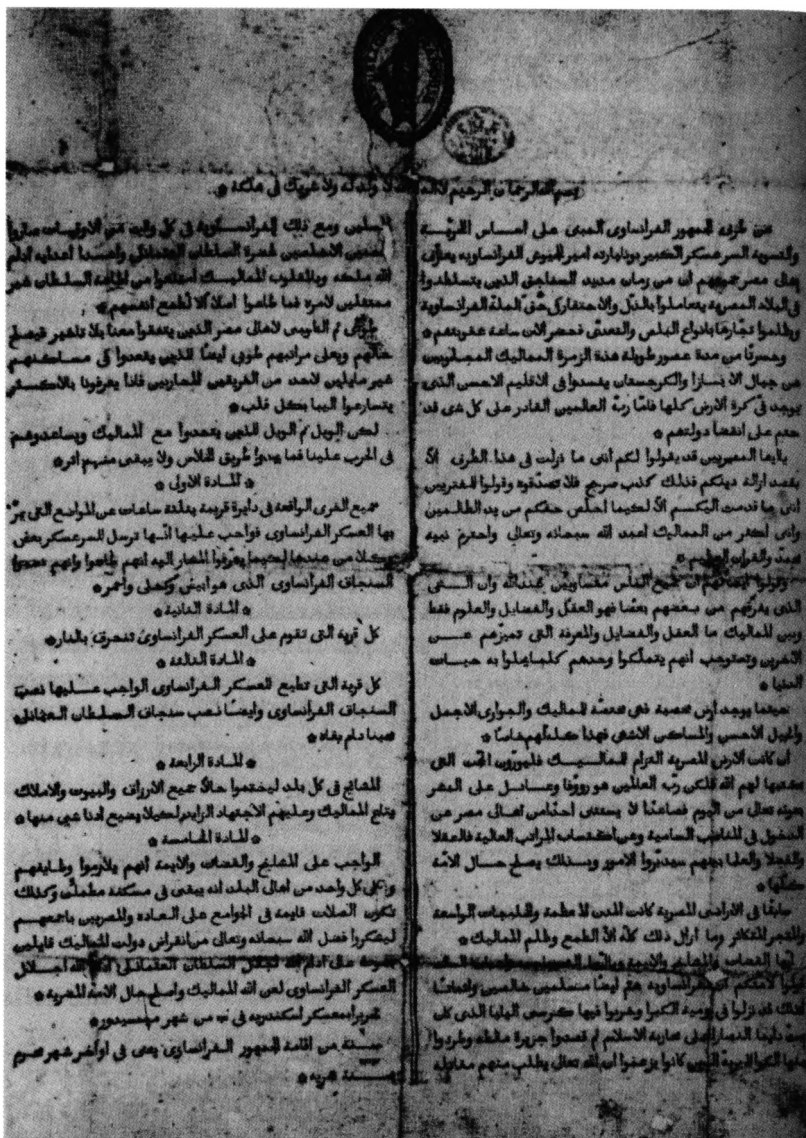 بسم الله الرحمان الرحيم لا اله الا الله لا ولد له ولا شريك في ملكه *
من طرف الجمهور الفرانساوى المبنى على اساس الحرية
والتسوية السرعسكر الكبير بونابارته امير الجيوش الفرانساويه يعرّف
اهالى مصر جميعهم ان من زمان مديد السناجق الذين يتسلطوا
فى البلاد المصرية يتعاملوا بالذل والاحتقار فى حقّ الملة الفرانساوية
وظلموا تجارها بانواع البلص والتعدى فحضر الان ساعة عقوبتهم *
وحسرتا من مدة عصور طويلة هذة الزمرة المماليك المجلوبين
من جبال الابازا والكرجستان يفسدوا فى الاقليم الاحسن الذى
يوجد فى كرة الارض كلها فامّا ربّ العالمين القادر على كل شى قد
حتم على انقضا دولتهم *
ياايها المصريين قد يقولوا لكم اننى ما نزلت فى هذا الطرف الّا
بقصد ازالة دينكم فذلك كذب صريح فلا تصدّقوه وقولوا للمفتريين
اننى ما قدمت اليكم الّا لكيما اخلّص حقكم من يد الظالمين
واننى اكثر من المماليك اعبد الله سبحانه وتعالى واحترم نبيه
محمدّ والقران العظيم *
وقولوا ايضا لهم ان جميع الناس متساويين عند الله وان الشى
الذى يفرّقهم من بعضهم بعضا فهو العقل والفضايل والعلوم فقط
وبين المماليك ما العقل والفضايل والمعرفة التى تميزهم عن
الاخرين وتستوجب انهم يتملّكوا وحدهم كلما يحلوا به حيات
الدنيا *
حيثما يوجد ارض مخصبة فهى مختصّة للمماليك والجوارى الاجمل
والخيل الاحسن والمساكن الاشهى فهذا كله لهم خاصا *
ان كانت الارض المصرية التزام للمماليك فليورّون الحجّت التى
كتبها لهم الله فلكن ربّ العالمين هو رووفا وعادل على البشر
بعونه تعالى من اليوم فصاعدًا لا يستثنى احدًا من اهالى مصر عن
الدخول فى المناصب السامية وعن اكتساب المراتب العالية فالعقلا
والفضلا والعلما بينهم سيدبّروا الامور وبذلك يصلح حال الامّة
كلّها *
سابقًا فى الاراضى المصرية كانت المدن المعظمة والخلجات الواسعة
والمتجر المتكاثر وما ازال ذلك كلّه الّا الطمع وظلم المماليك *
ايها القضات والمشايخ والايمة
قولوا لامتكم ان الفرانساوية هم ايضًا مسلمين خالصين واثباتًا
لذلك قد نزلوا فى رومية الكبرا وخربوا فيها كرسى البابا الذى كان
دايما النصارى على محاربة الاسلام ثم قصدوا جزيرة مالطه وطردوا
منها الكواليرية الذين كانوا يزعموا ان الله تعالى يطلب منهم مقاتلة
المسلمين ومع ذلك الفرانساوية فى كل وقت من الاوقات صاروا
المحبين الاخلصين لحضرة السلطان العثمانلى واعدا اعدايه ادام
الله ملكه وبالمقلوب المماليك امتنعوا من اطاعة السلطان غير
ممتثلين لامره فما طاعوا اصلا الّا لطمع انفسهم *
طوبى ثم الطوبى لاهالى مصر الذين يتفقوا معنا بلا تاخير فيصلح
حالهم ويعلى مراتبهم طوبى ايضًا للذين يقعدوا فى مساكنهم
غير مايلين لاحد من الفريقين المحاربين فاذا يعرفونا بالاكثر
يتسارعوا الينا بكل قلب *
لكن الويل ثم الويل للذين يتحدوا مع المماليك ويساعدوهم
فى الحرب علينا فما يجدوا طريق الخلاص ولا يبقى منهم اثر *
* المادة الاولى *
جميع القرى الواقعة فى دايرة قريبة بثلاثة ساعات عن المواضع التى يمرّ
بها العسكر الفرانساوى فواجب عليها انّها ترسل للسرعسكر بعض
وكلا من عندها لكيما يعرّفوا المشار اليه انهم اطاعوا وانهم نصبوا
السنجاق الفرانساوى الذى هو ابيض وكحلى واحمر *
* المادة الثانية *
كل قرية التى تقوم على العسكر الفرانساوى تنحرق بالنار *
* المادة الثالثة *
كل قرية التى تطيع للعسكر الفرانساوى الواجب عليها نصب
السنجاق الفرانساوى وايضًا نصب سنجاق السلطان العثمانلى
محبنا دام بقاه *
* المادة الرابعة *
المشايخ فى كل بلد ليختموا حالًا جميع الارزاق والبيوت والاملاك
بتاع المماليك وعليهم الاجتهاد الزايد لكيلا يضيع ادنا شى منها *
* المادة الخامسة *
الواجب على المشايخ والقضات والايمة انهم يلازموا وظايفهم
وعلى كل واحد من اهالى البلد انه يبقى فى مسكنه مطمان وكذلك
تكون الصلات قايمة فى الجوامع على العاده والمصريين باجمعهم
ليشكروا فضل الله سبحانه وتعالى من انقراض دولت المماليك قايلين
بصوت عالى ادام الله اجلال السلطان العثمانلى ادام الله اجلال
العسكر الفرانساوى لعن الله المماليك واصلح حال الامة المصرية *
تحريرا بمعسكر اسكندرية فى من شهر مسيدور *
سنة من اقامة الجمهور الفرانساوى يعنى فى اواخر شهر محرم
سنة هجريه *